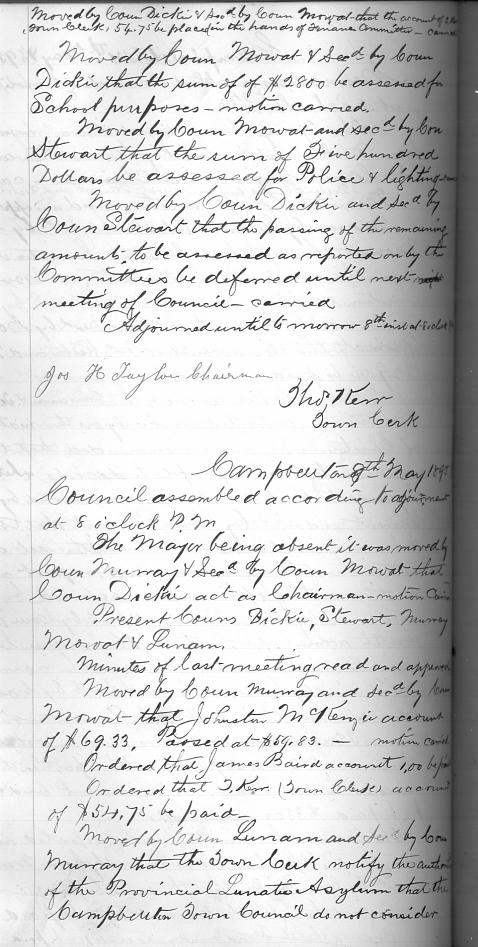 Moved by Coun Dickie & Secd by Coun Mowat that the account of
Town Clerk, 54.75 be placed in the hands of Finance Committee –
Moved by Coun Mowat & Secd by Coun
Dickie that the sum of of $2800 be assessed for
School purposes – motion carried.
Moved by Coun Mowat and Secd by Con
Stewart that the sum of Five hundred
Dollars be assessed for Police & lighting
Moved by Coun Dickie and Secd by
Coun Stewart that the passing of the remaining
amounts, to be assessed as reported on by the
Committees be deferred until next
meeting of Council – carried
Adjourned until to morrow 8th inst at 8 oclock
Jos H Taylor Chairman
Thos Kerr
Town Cerk
Campbellton 8th May 189
Council assembled according to
at 8 oclock P.M
The Mayor being absent it was moved by
Coun Murray & Secd by Coun Mowat that
Coun Dickie act as Chairman – motion
Present Couns Dickie, Stewart, Murray
Mowat & Lunam,
Minutes of last meeting read and
Moved by Coun Murray and Secd by
Mowat that Johnston McKenzie account
of $69.33, Passed at $59.83. – motion
Ordered that James Baird account 1,00 be
Ordered that T. Kerr (Town Clerk) account
of $54.75 be paid –
Moved by Coun Lunam and Secd by Coun
Murray that the Town Cerk notify the
of the Provincial Lunatic Asylum that the
Campbellton Town Council do not consider